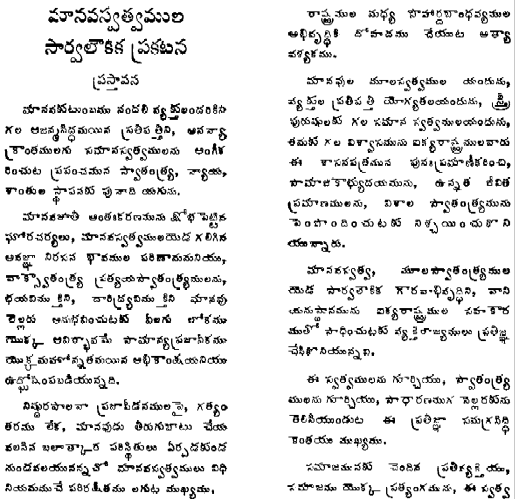 మానవస్వత్వముల
సార్వలౌకిక ప్రకటన
ప్రస్తావన
మానవకుటుంబము నందలి వ్యక్తులందరికిని
గల ఆజన్మసిద్ధమయిన ప్రతిపత్తిని, అనన్యా
క్రాంతములగు సమానస్వత్వములను అంగీక
రించుట ప్రపంచమున స్వాతంత్ర్య, న్యాయ,
శాంతుల స్థాపనకు పునాది యగును.
మానవజాతి అంతఃకరణమును క్షోభపెట్టిన
ఘోరచర్యలు, మానవస్వత్వములయెడ గలిగిన
అవజ్ఞా నిరసన భావముల పరిణామమనియు,
వాక్స్వాతంత్ర్య ప్రత్యయస్వాతంత్ర్యములను,
భయవిముక్తిని, దారిద్ర్యవిముక్తిని మానవు
లెల్లరు అనుభవించుటకు వీలగు లోకము
యొక్క ఆవిర్భావమే సామాన్యప్రజానీకము
యొక్క మహోన్నతమయిన అభికాంక్షయనియు
ఉద్ఘోషింపబడియున్నది.
నిష్ఠురపాలనా ప్రజాపీడనములపై, గత్యం
తరము లేక, మానవుడు తిరుగుబాటు చేయ
వలసిన బలాత్కార పరిస్థితులు ఏర్పడకుండ
నుండవలయునన్నచో మానవస్వత్వములు విధి
నియమముచే పరిరక్షితము లగుట ముఖ్యము.
రాష్ట్రముల మధ్య సౌహార్దబాంధవ్యముల
అభివృద్ధికి దోహదము చేయుట అత్యా
వశ్యకము.
మానవుల మూలస్వత్వముల యందును,
వ్యక్తుల ప్రతిపత్తి యోగ్యతలయందును, స్త్రీ
పురుషులకు గల సమాన స్వత్వములయందును,
తమకు గల విశ్వాసమును ఐక్యరాష్ట్రములవారు
ఈ శాసనపత్రమున పునఃప్రమాణీకరించి,
సామాజికాభ్యుదయమును, ఉన్నత జీవిత
ప్రమాణములను, విశాల స్వాతంత్ర్యమును
పెంపొందించుటకు నిశ్చయించుకొని
యున్నారు.
మానవస్వత్వ, మూలస్వాతంత్ర్యముల
యెడ సార్వలౌకిక గౌరవాభివృద్ధిని, వాని
యనుష్ఠానమును ఐక్యరాష్ట్రముల సహకార
ముతో సాధించుటకు వ్యక్తిరాజ్యములు ప్రతిజ్ఞ
చేసికొనియున్నవి.
ఈ స్వత్వములను గూర్చియు, స్వాతంత్ర్య
ములను గూర్చియు, సాధారణముగ నెల్లరకును
తెలిసియుండుట ఈ ప్రతిజ్ఞా సమగ్రసిద్ధి
కెంతయు ముఖ్యము.
సమాజమునకు చెందిన ప్రతివ్యక్తియు,
సమాజము యొక్క ప్రత్యంగమును, ఈ స్వత్వ